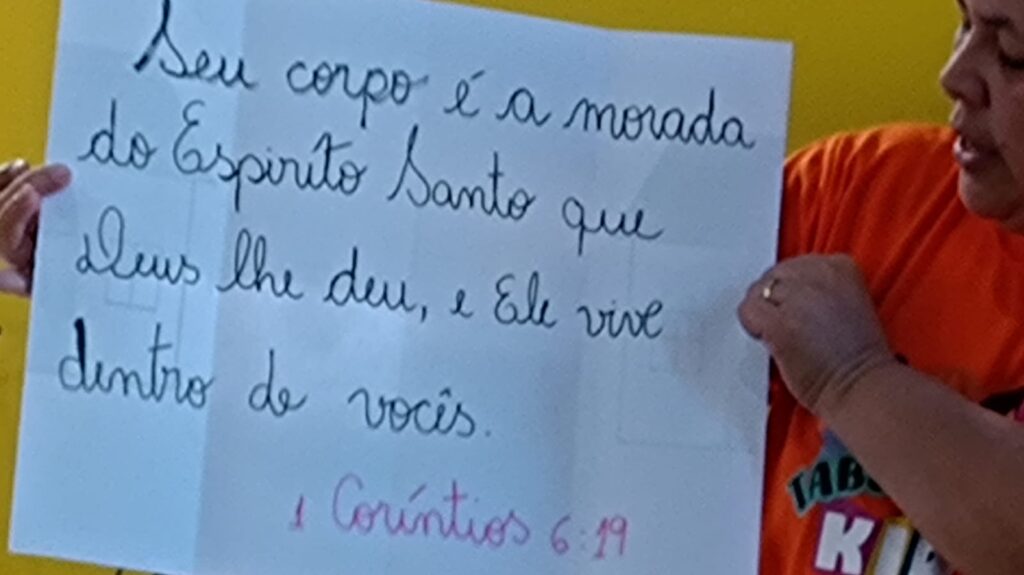 Seu corpo é a morada
do Espiríto Santo que
Deus lhe deu, e Ele vive
dentro de vocês.
1 Coríntios 6:19
TAB
KI